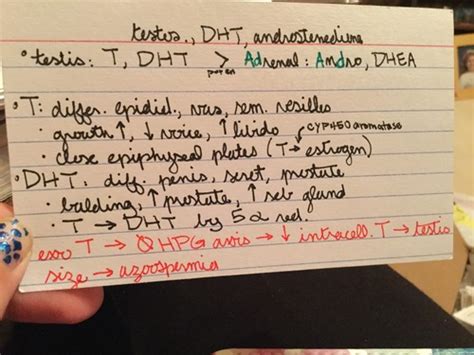 testos., DHT, androstenedione
• testis: T, DHT > Adrenal: Andro, DHEA
poten
• T: differ. epidid., vas, sem. vesicles
• growth ↑, ↓ voice, ↑ libido CYP450 aromatase
• close epiphyseal plates (T → estrogen)
• DHT: diff. penis, scrot, prostate
• balding, ↑ prostate, ↑ seb gland
• T → DHT by 5α red.
exo T → HPG axis → ↓ intracell. T → ↓ testis
size → azoospermia